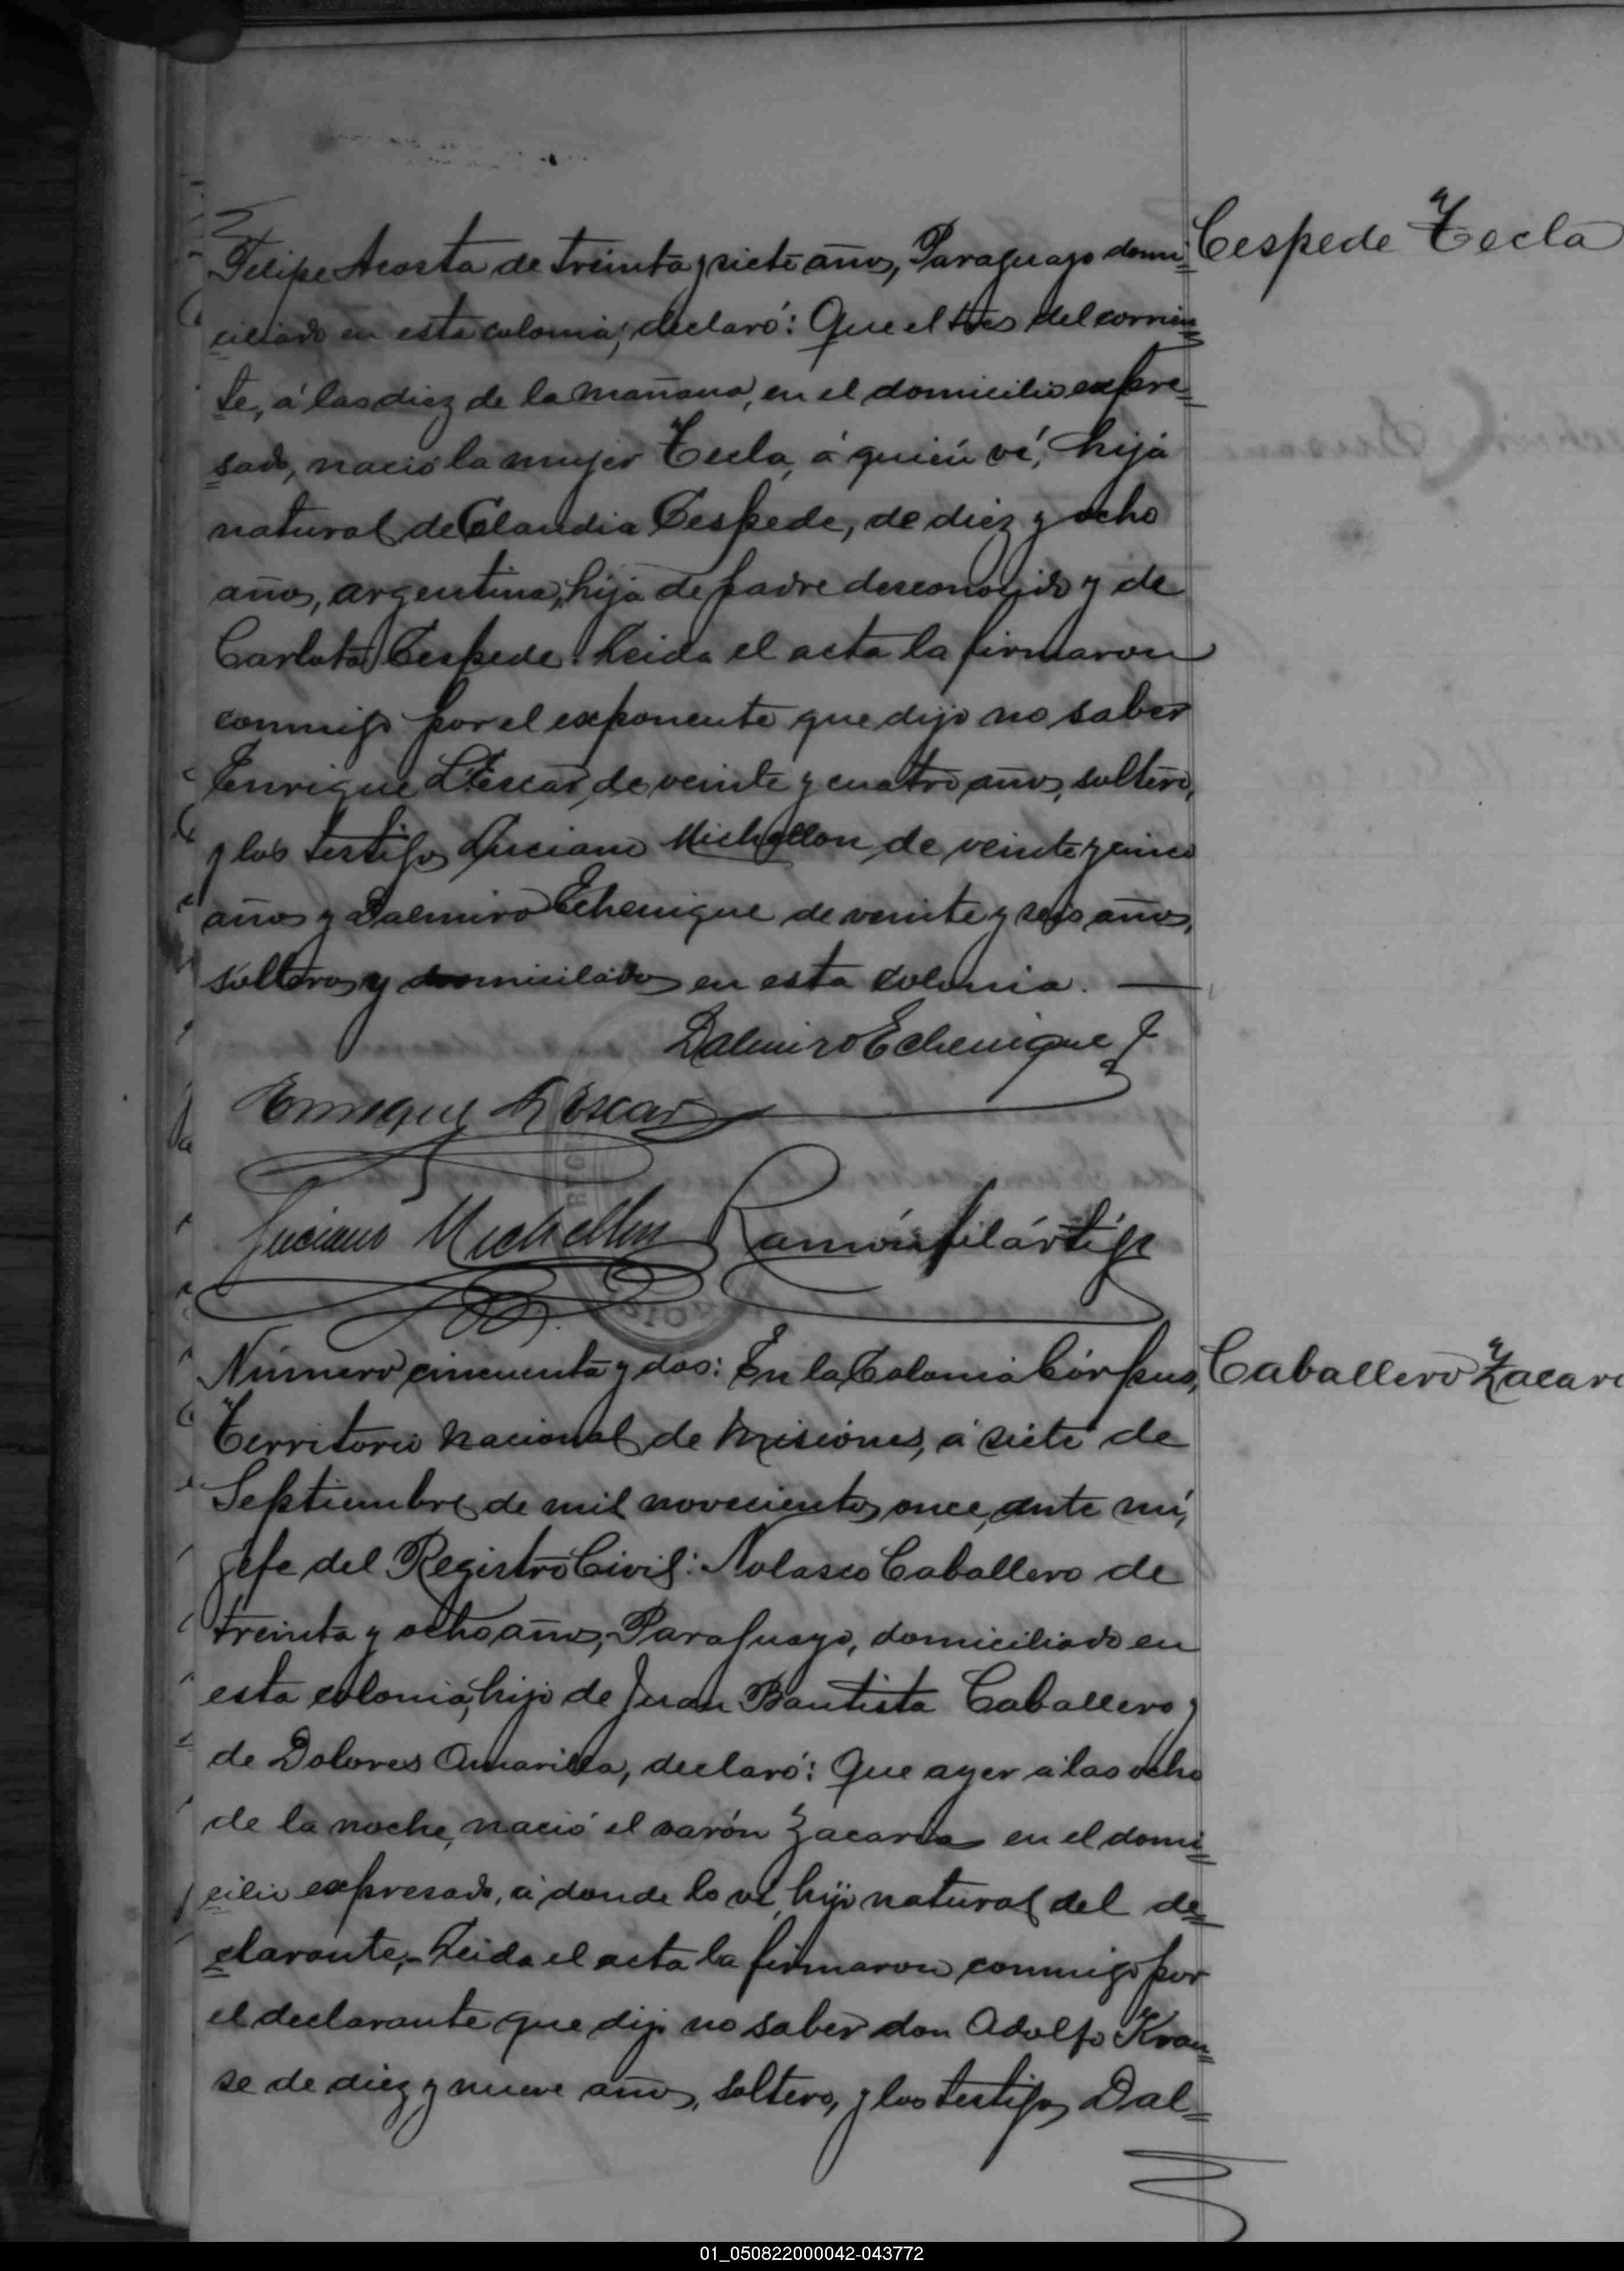 Felipe Acosta de treinta y siete años, Paraguayo domi= Cespede Tecla
ciliado en esta colonia, declaró: Que el tres del corrien=
te, á las diez de la mañana, en el domicilio expre=
sado, nació la mujer Tecla, á quién ví, hija
natural de Claudia Cespede, de diez y ocho
años, argentina, hija de padre desconocido y de
Carlota Cespede. Leida el acta la firmaron
conmigo por el exponente que dijo no saber
Enrique L'Escar, de veinte y cuatro años, soltero,
y los testigos Luciano Michellon, de veinte y cinco
años y Dalmiro Echenique de veinte y seis años,
solteros y domiciliados en esta colonia. —
Dalmiro Echenique
Enrique L'Escar
Luciano Michellon Ramón Filártiga
Número cincuenta y dos: En la Colonia Córpus, Caballero Zacari
Territorio Nacional de Misiones, á siete de
Septiembre de mil novecientos once, ante mí,
Jefe del Registro Civil: Nolasco Caballero de
treinta y ocho años, Paraguayo, domiciliado en
esta colonia, hijo de Juan Bautista Caballero y
de Dolores Amarilla, declaró: Que ayer a las ocho
de la noche, nació el varón Zacarias en el domi=
cilio expresado, á donde lo ví, hijo natural del de=
clarante,- Leida el acta la firmaron conmigo por
el declarante que dijo no saber don Adolfo Krau=
se de diez y nueve años, soltero, y los testigos Dal=
01_050822000042-043772